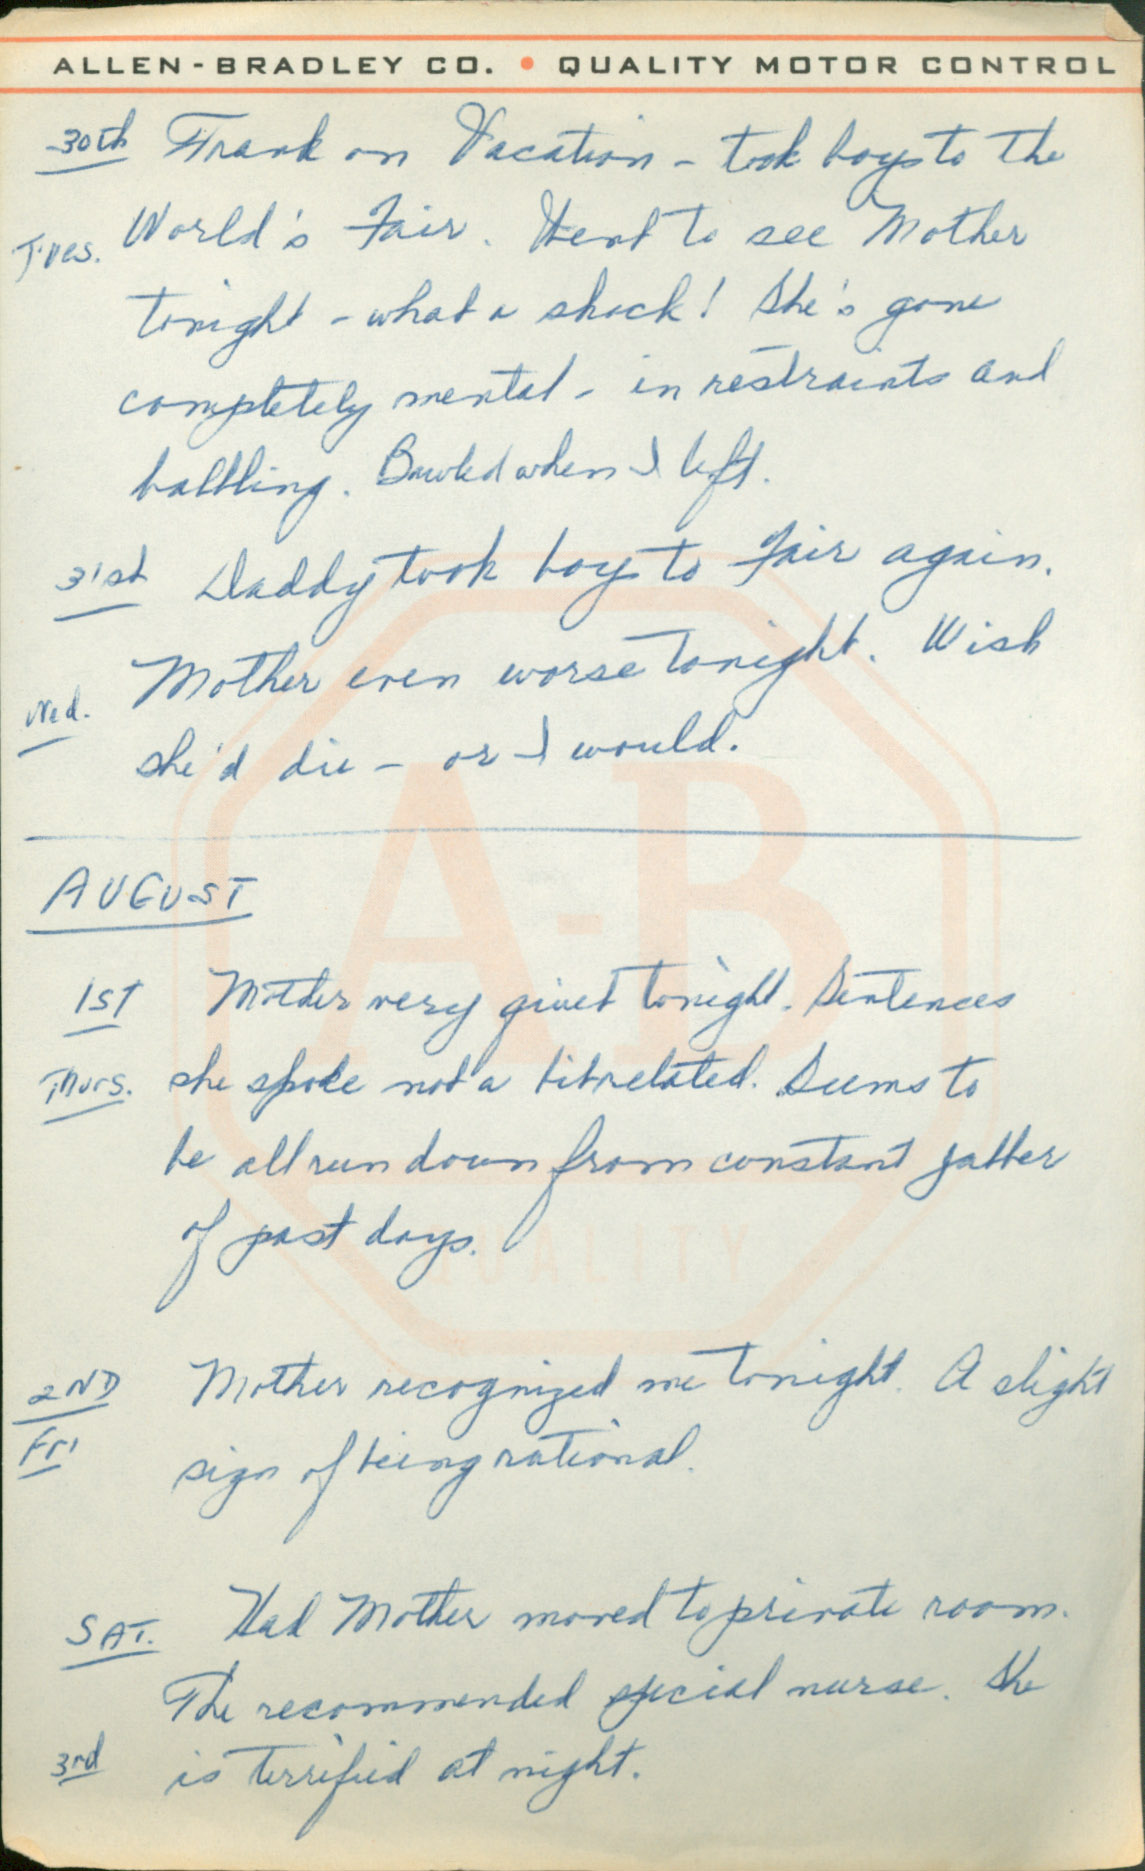 ALLEN-BRADLEY CO. • QUALITY MOTOR CONTROL
30th Frank on Vacation - took boys to the
Tues. World's Fair. Went to see Mother
tonight - what a shock! She's gone
completely mental - in restraints and
babbling. Bawled when I left.
31st Daddy took boys to Fair again.
Mother even worse tonight. Wish
Wed. she'd die - or I would.
AUGUST
1ST Mother very quiet tonight. Sentences
Thurs. she spoke not a bit related. Seems to
be all run down from constant jabber
of past days.
2ND Mother recognized me tonight. A slight
Fri sign of being rational.
SAT. Had Mother moved to private room.
The recommended special nurse. She
3rd is terrified at night.
A-B
QUALITY